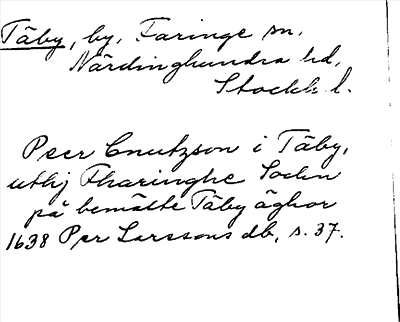 Täby, by, Faringe sn.
Närdinghundra hd,
Stockh. l.
Peer Cnutzson i Täby,
uthj Fharinghe Sochn
på bemälte Täby äghor
1638 Per Larssons db, s. 37.